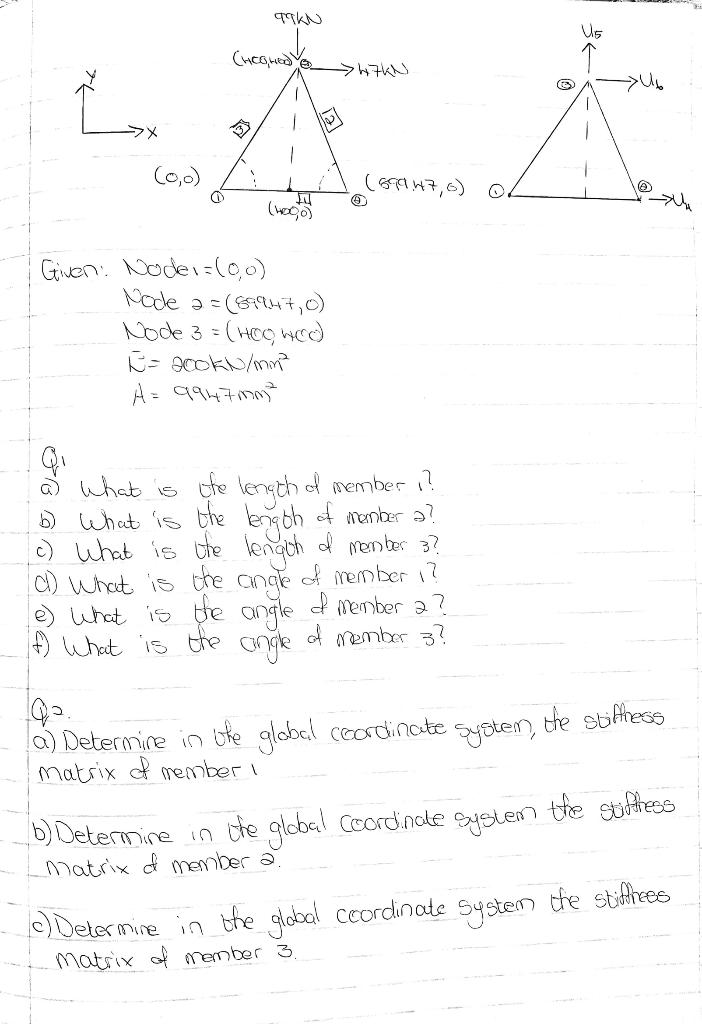 99KN
(400,400) ③ 47KN
Y
X
3
2
(0,0)
①
1
(400,0)
②
U5
③
U6
①
②
U4
Given: Node 1 = (0,0)
Node 2 =
Node 3 = (400, 400)
E = 200KN/mm²
A = 9947mm²
Q1
a) What is the length of member 1?
b) What is the length of member 2?
c) What is the length of member 3?
d) What is the angle of member 1?
e) What is the angle of member 2?
f) What is the angle of member 3?
Q2.
a) Determine in the global coordinate system, the stiffness
matrix of member 1
b) Determine in the global coordinate system the stiffness
matrix of member 2.
c) Determine in the global coordinate system the stiffness
matrix of member 3.